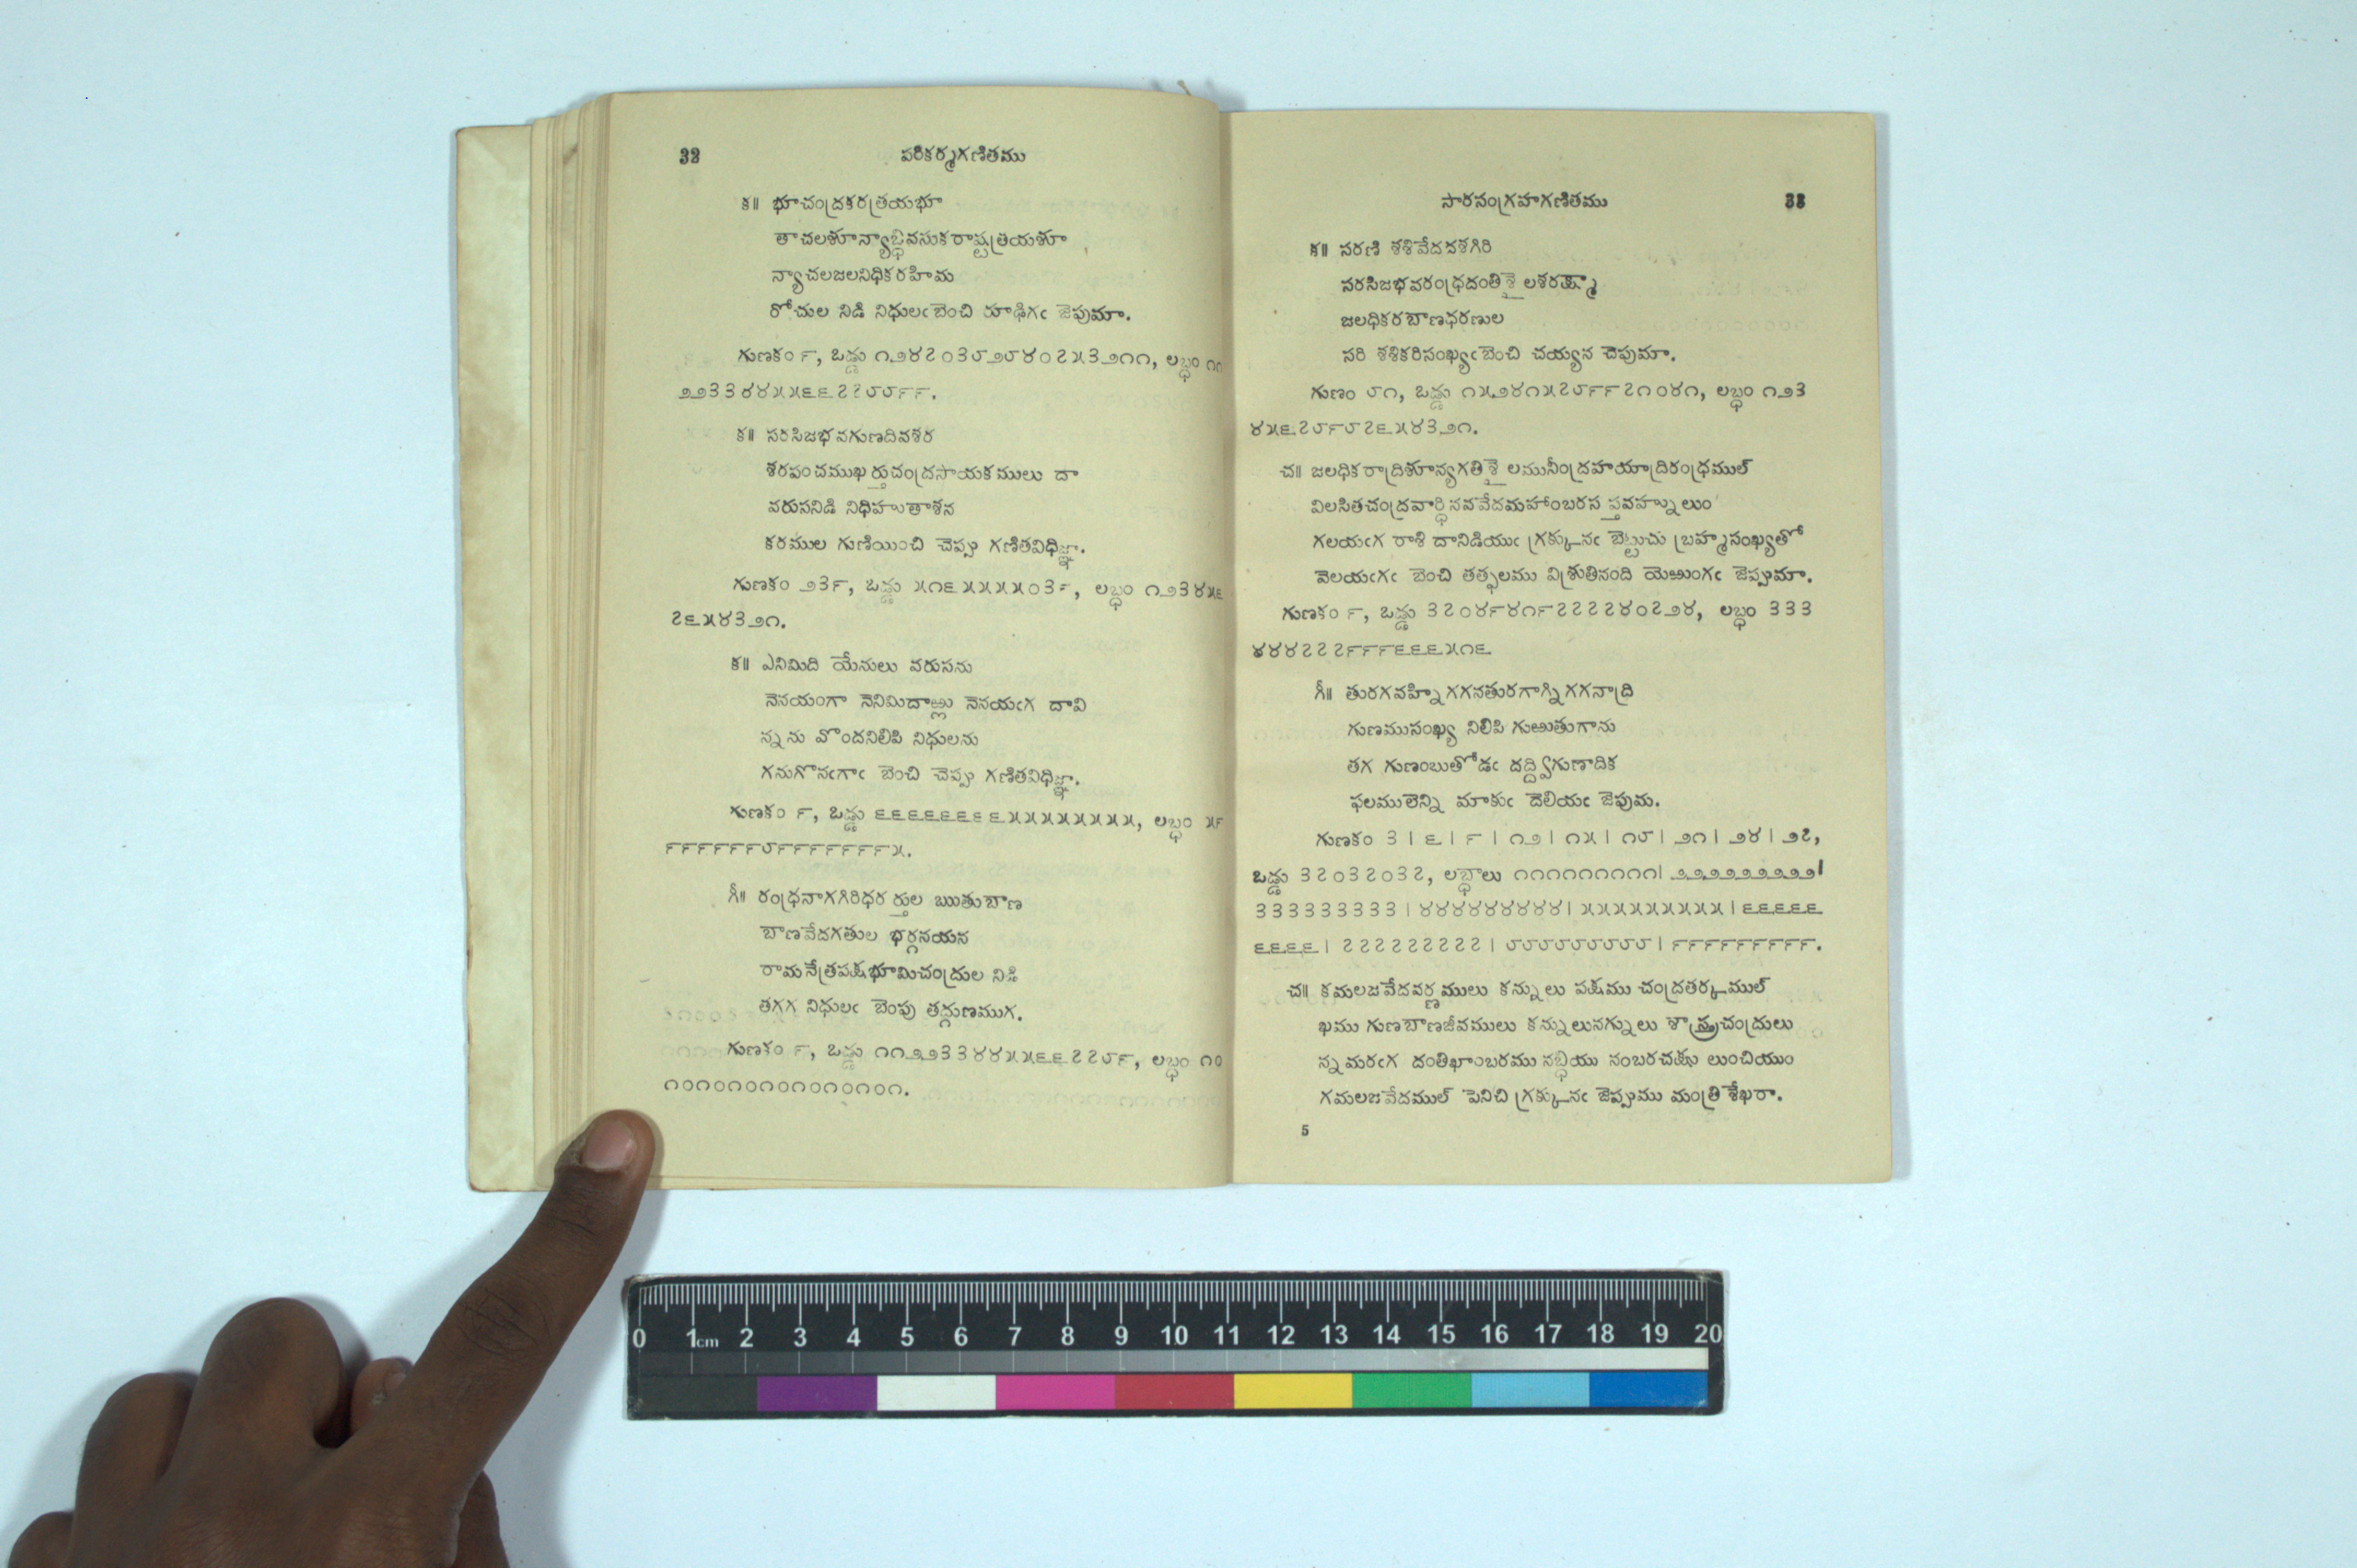 32
పరికర్మగణితము
క॥ భూచంద్రకరత్రయభూ
తాచలశూన్యాబ్ధివసుకరాష్టత్రియశూ
న్యాచలజలనిధికరహిమ
రోచుల నిడి నిధులఁ బెంచి రూఢిగఁ జెపుమా.
గుణకం ౯, ఒడ్డు ౧౨౪౭౦౩౮౨౮౪౦౭౫౩౨౧౧, లబ్ధం ౧౧
౨౨౩౩౪౪౫౫౬౬౭౭౮౮౯౯.
క॥ సరసిజభవగుణదివశర
శరపంచముఖర్తుచంద్రసాయకములు దా
వరుసనిడి నిధిహుతాశన
కరముల గుణియించి చెప్పు గణితవిధిజ్ఞా.
గుణకం ౨౩౯, ఒడ్డు ౫౧౬౫౫౫౫౦౩౯, లబ్ధం ౧౨౩౪౫౬
౭౬౫౪౩౨౧.
క॥ ఎనిమిది యేనులు వరుసను
నెనయంగా నెనిమిదాఱ్లు నెనయఁగ దావి
న్నను వొందనిలిపి నిధులను
గనుగొనఁగాఁ బెంచి చెప్పు గణితవిధిజ్ఞా.
గుణకం ౯, ఒడ్డు ౬౬౬౬౬౬౬౬౫౫౫౫౫౫౫౫, లబ్ధం ౫౯
౯౯౯౯౯౯౮౯౯౯౯౯౯౯౫.
గీ॥ రంధ్రనాగగిరిధర ర్తుల ఋతుబాణ
బాణవేదగతుల భర్గనయన
రామనేత్రపక్షభూమిచంద్రుల నిడి
తగగ నిధులఁ బెంపు తద్గుణముగ.
గుణకం ౯, ఒడ్డు ౧౧౨౨౩౩౪౪౫౫౬౬౭౭౮౯, లబ్ధం ౧౦
౧౦౧౦౧౦౧౦౧౦౧౦౧౦౧.
సారసంగ్రహగణితము
33
క॥ సరణి శశివేదదశగిరి
సరసిజభవరంధ్రదంతిశైలశరక్ష్మా
జలధికరబాణధరణుల
సరి శశికరిసంఖ్యఁ బెంచి చయ్యన చెపుమా.
గుణం ౮౧, ఒడ్డు ౧౫౨౪౧౫౭౮౯౯౭౧౦౪౧, లబ్ధం ౧౨౩
౪౫౬౭౮౯౮౭౬౫౪౩౨౧.
చ॥ జలధికరాద్రిశూన్యగతిశైలమునీంద్రహయాద్రిరంధ్రముల్
విలసితచంద్రవార్ధినవవేదమహాంబరస ప్తవహ్నులుం
గలయఁగ రాశి దానిడియుఁ గ్రక్కునఁ బెట్టుచు బ్రహ్మసంఖ్యతో
వెలయఁగఁ బెంచి తత్ఫలము విశ్రుతినంది యెఱుంగఁ జెప్పుమా.
గుణకం ౯, ఒడ్డు ౩౭౦౪౯౪౧౯౭౭౭౭౪౦౭౨౪, లబ్ధం ౩౩౩
౪౪౪౭౭౭౯౯౯౬౬౬౫౧౬
గీ॥ తురగవహ్ని గగనతురగాగ్ని గగనాద్రి
గుణముసంఖ్య నిలిపి గుఱుతుగాను
తగ గుణంబుతోడఁ దద్ద్విగుణాదిక
ఫలములెన్ని మాకుఁ దెలియఁ జెపుమ.
గుణకం ౩ । ౬ । ౯ । ౧౨ । ౧౫ । ౧౮ । ౨౧ । ౨౪ । ౨౭,
ఒడ్డు ౩౭౦౩౭౦౩౭, లబ్ధాలు ౧౧౧౧౧౧౧౧౧। ౨౨౨౨౨౨౨౨౨।
౩౩౩౩౩౩౩౩౩ । ౪౪౪౪౪౪౪౪౪। ౫౫౫౫౫౫౫౫౫ । ౬౬౬౬౬
౬౬౬౬ । ౭౭౭౭౭౭౭౭౭ । ౮౮౮౮౮౮౮౮౮ । ౯౯౯౯౯౯౯౯౯.
చ॥ కమలజవేదవర్ణములు కన్నులు పక్షము చంద్రతర్కముల్
ఖము గుణబాణజీవములు కన్నులునగ్నులు శాస్త్రచంద్రులు
న్నమరఁగ దంతిఖాంబరము నబ్ధియు నంబరచక్షు లుంచియుం
గమలజవేదముల్ పెనిచి గ్రక్కునఁ జెప్పుము మంత్రిశేఖరా.
5
0 1cm 2 3 4 5 6 7 8 9 10 11 12 13 14 15 16 17 18 19 20